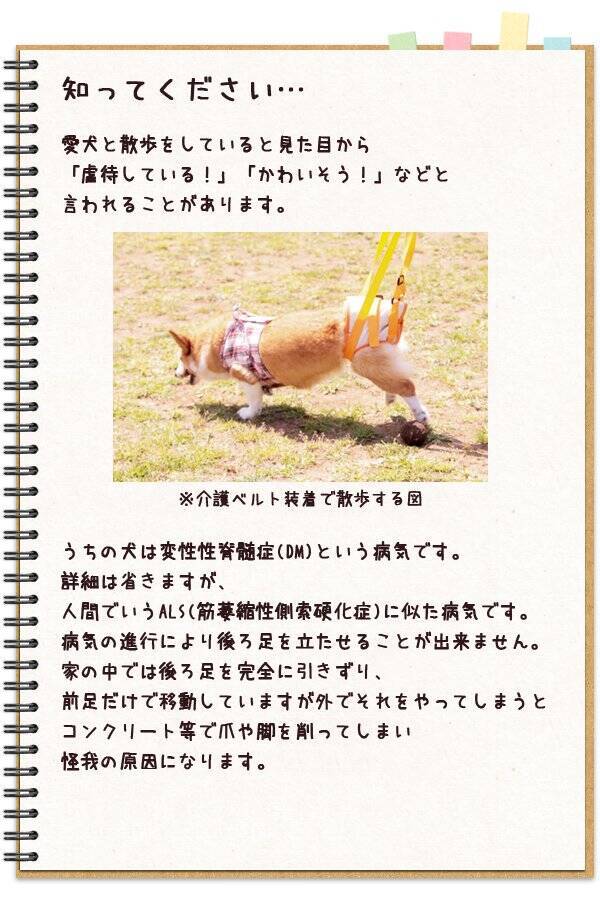 知ってください…
愛犬と散歩をしていると見た目から
「虐待している！」「かわいそう！」などと
言われることがあります。
※介護ベルト装着で散歩する図
うちの犬は変性性脊髄症(DM)という病気です。
詳細は省きますが、
人間でいうALS(筋萎縮性側索硬化症)に似た病気です。
病気の進行により後ろ足を立たせることが出来ません。
家の中では後ろ足を完全に引きずり、
前足だけで移動していますが外でそれをやってしまうと
コンクリート等で爪や脚を削ってしまい
怪我の原因になります。